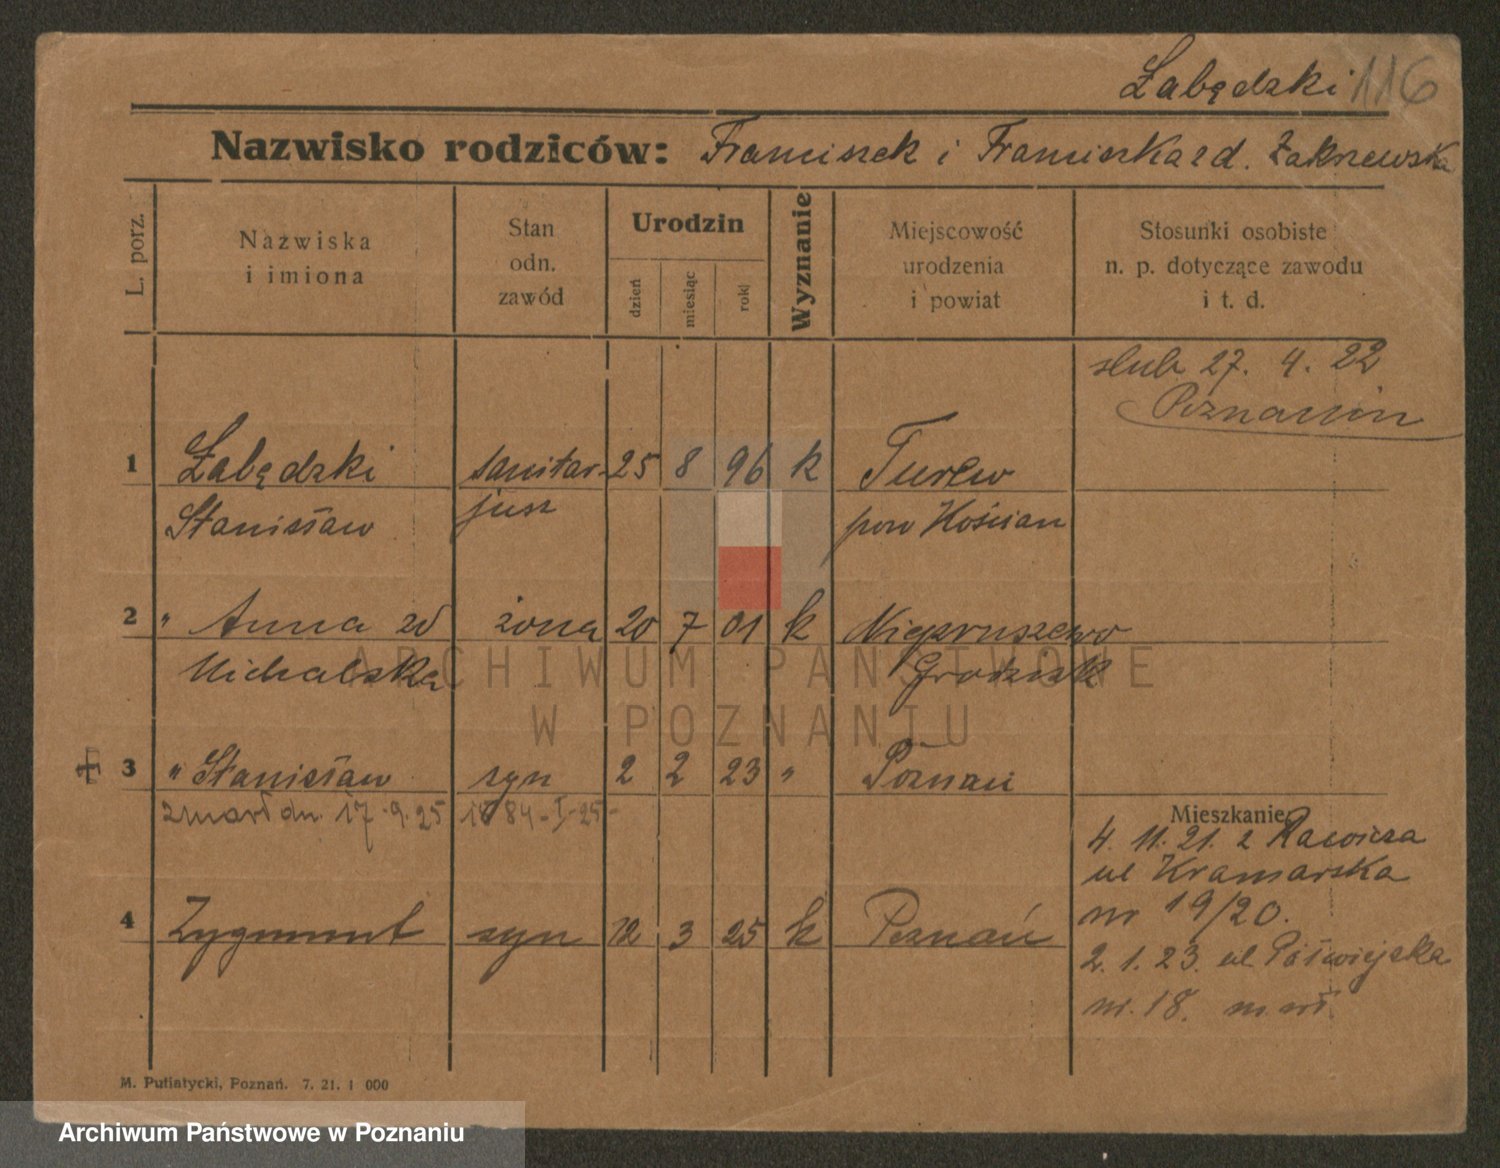 Łabędzki 116
Nazwisko rodziców: Franciszek i Franciszka zd. Zakrzewska
L. porz.
Nazwiska
i imiona
Stan
odn.
zawód
Urodzin
dzień
miesiąc
rok
Wyznanie
Miejscowość
urodzenia
i powiat
Stosunki osobiste
n. p. dotyczące zawodu
i t. d.
slub 27. 4. 22
Poznaniu
1 Łabędzki sanitar- 25 8 96 k Turew
Stanisław jusz pow Kościan
2 " Anna zd żona 20 7 01 k Niepruszewo
Michalska Grodzisk
3 " Stanisław syn 2 2 23 " Poznań
zmarł dn. 17.9.25
Mieszkanie
4. 11. 21. z Rawicza
ul Kramarska
nr 19/20.
4 Zygmunt syn 12 3 25 k Poznań
2. 1. 23. ul
nr. 18.
M. Putiatycki, Poznań. 7. 21. 1 000
ARCHIWUM PAŃSTWOWE
W POZNANIU
Archiwum Państwowe w Poznaniu